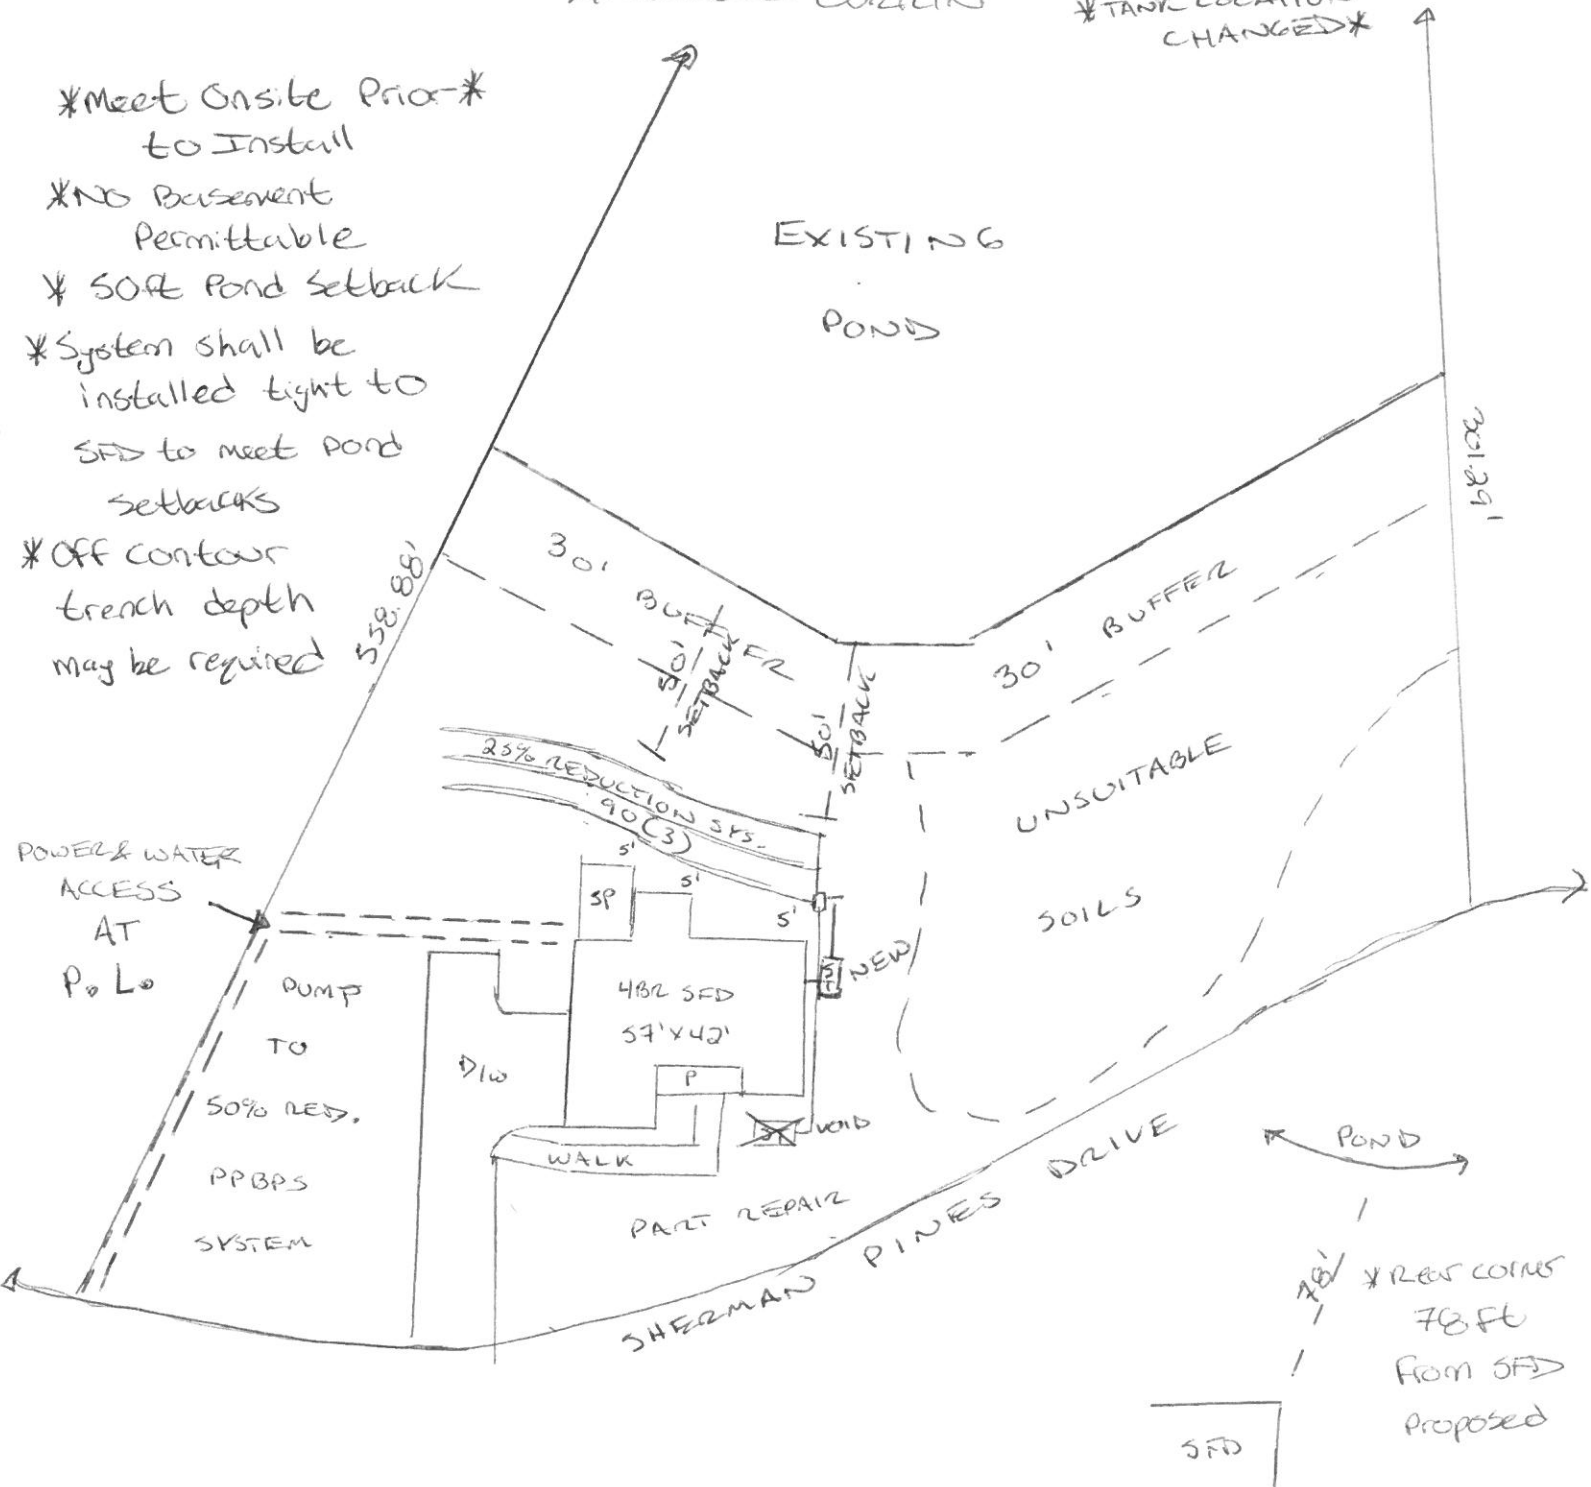 *TANK LOCATION
CHANGED*
*Meet Onsite Prior*
to Install
*NO Basement
Permittable
* 50ft Pond Setback
*System shall be
installed tight to
SFD to meet pond
setbacks
*Off contour
trench depth
may be required
EXISTING
POND
558.88'
301.29'
30' BUFFER
50'
SETBACK
50'
SETBACK
30' BUFFER
UNSUITABLE
SOILS
25% REDUCTION SYS.
90(3)
5'
5'
5'
SP
POWER & WATER
ACCESS
AT
P.L.
PUMP
TO
50% RED.
PPBPS
SYSTEM
D/W
4BR SFD
57'X42'
P
ST
NEW
ST
VOID
WALK
PART REPAIR
SHERMAN PINES DRIVE
POND
78'
*Rear corner
78ft
From SFD
Proposed
SFD